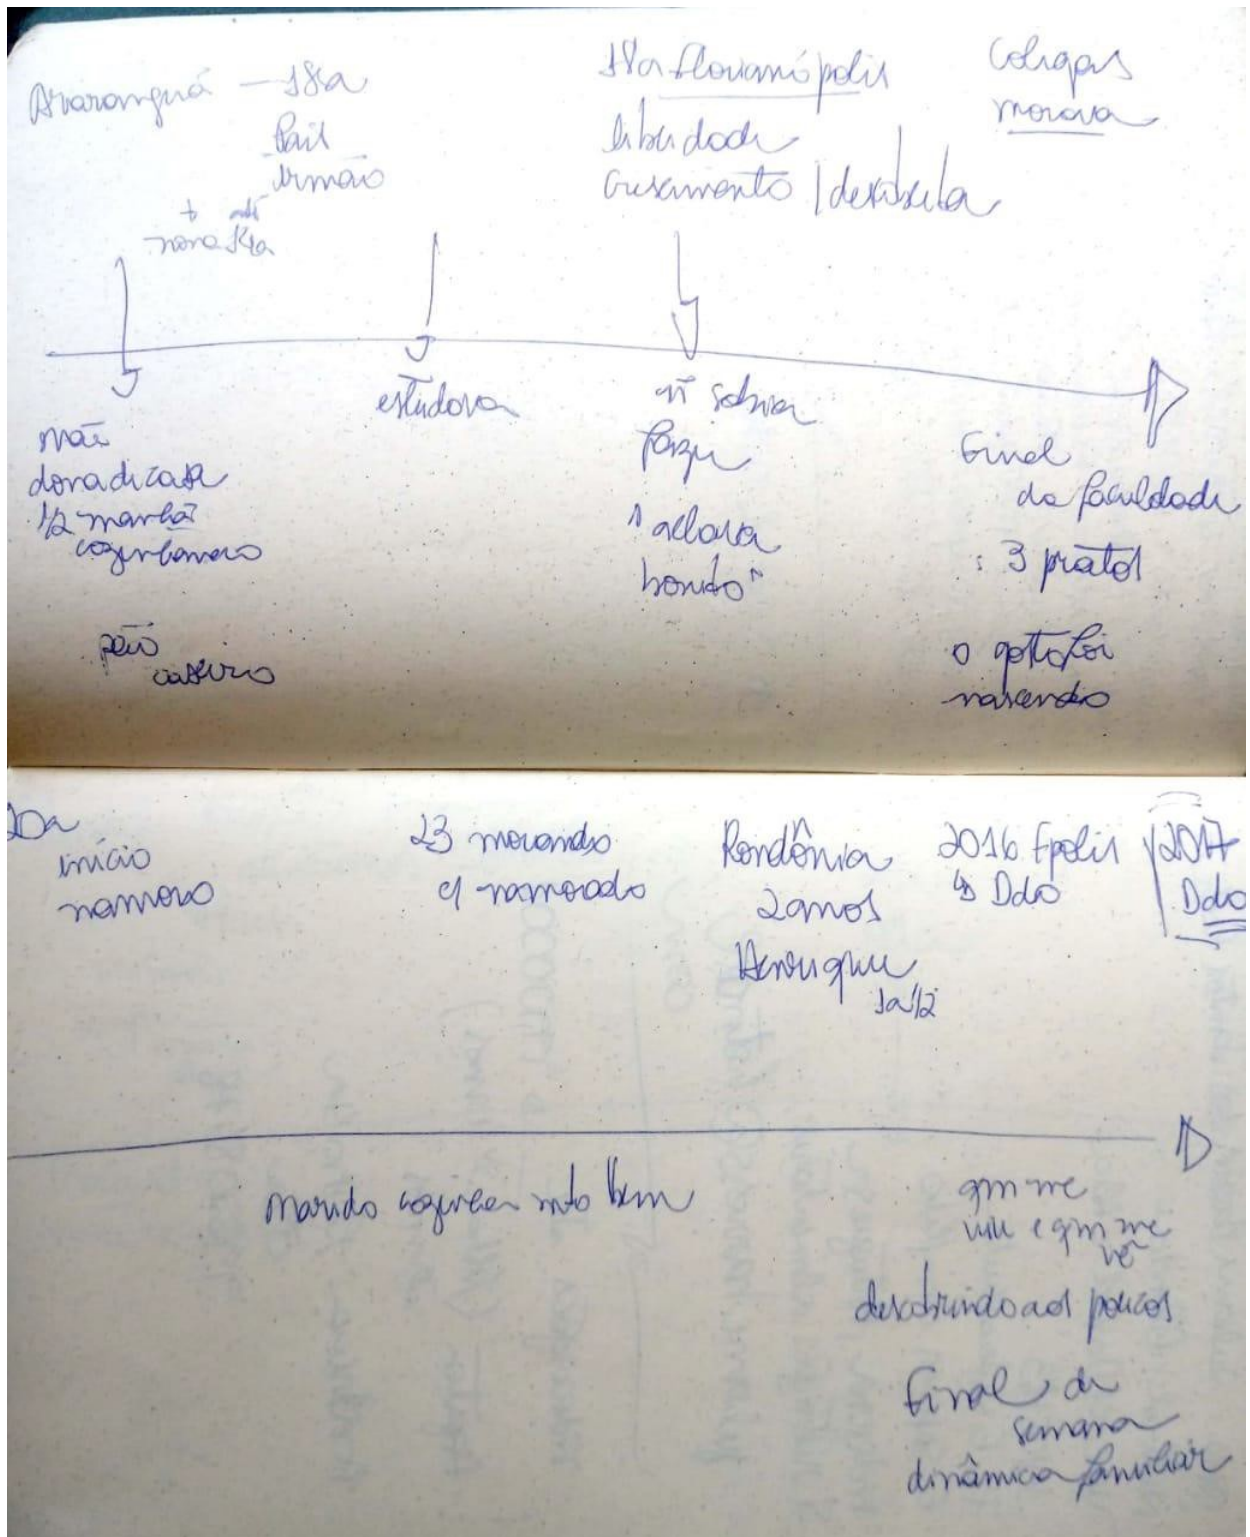 Araranguá — 18a
Pais
Irmão
+ até
nona 14a
18a Florianópolis
liberdade
crescimento / descoberta
Colegas
morava
mãe
dona di casa
1/2 manhã
cozinhando
pão
caseiro
estudava
ñ sabia
fazer
"achava
bonito"
Final
da faculdade
: 3 pratos
o gosto foi
nascendo
20a
início
namoro
23 morando
c/ namorado
Rondônia
2 anos
Henrique
1a1/2
2016 Fpolis
↳ Ddo
2017
Ddo
Marido cozinha mto bem
qm me
viu e qm me
vê
descobrindo aos poucos
Final de
semana
dinâmica familiar